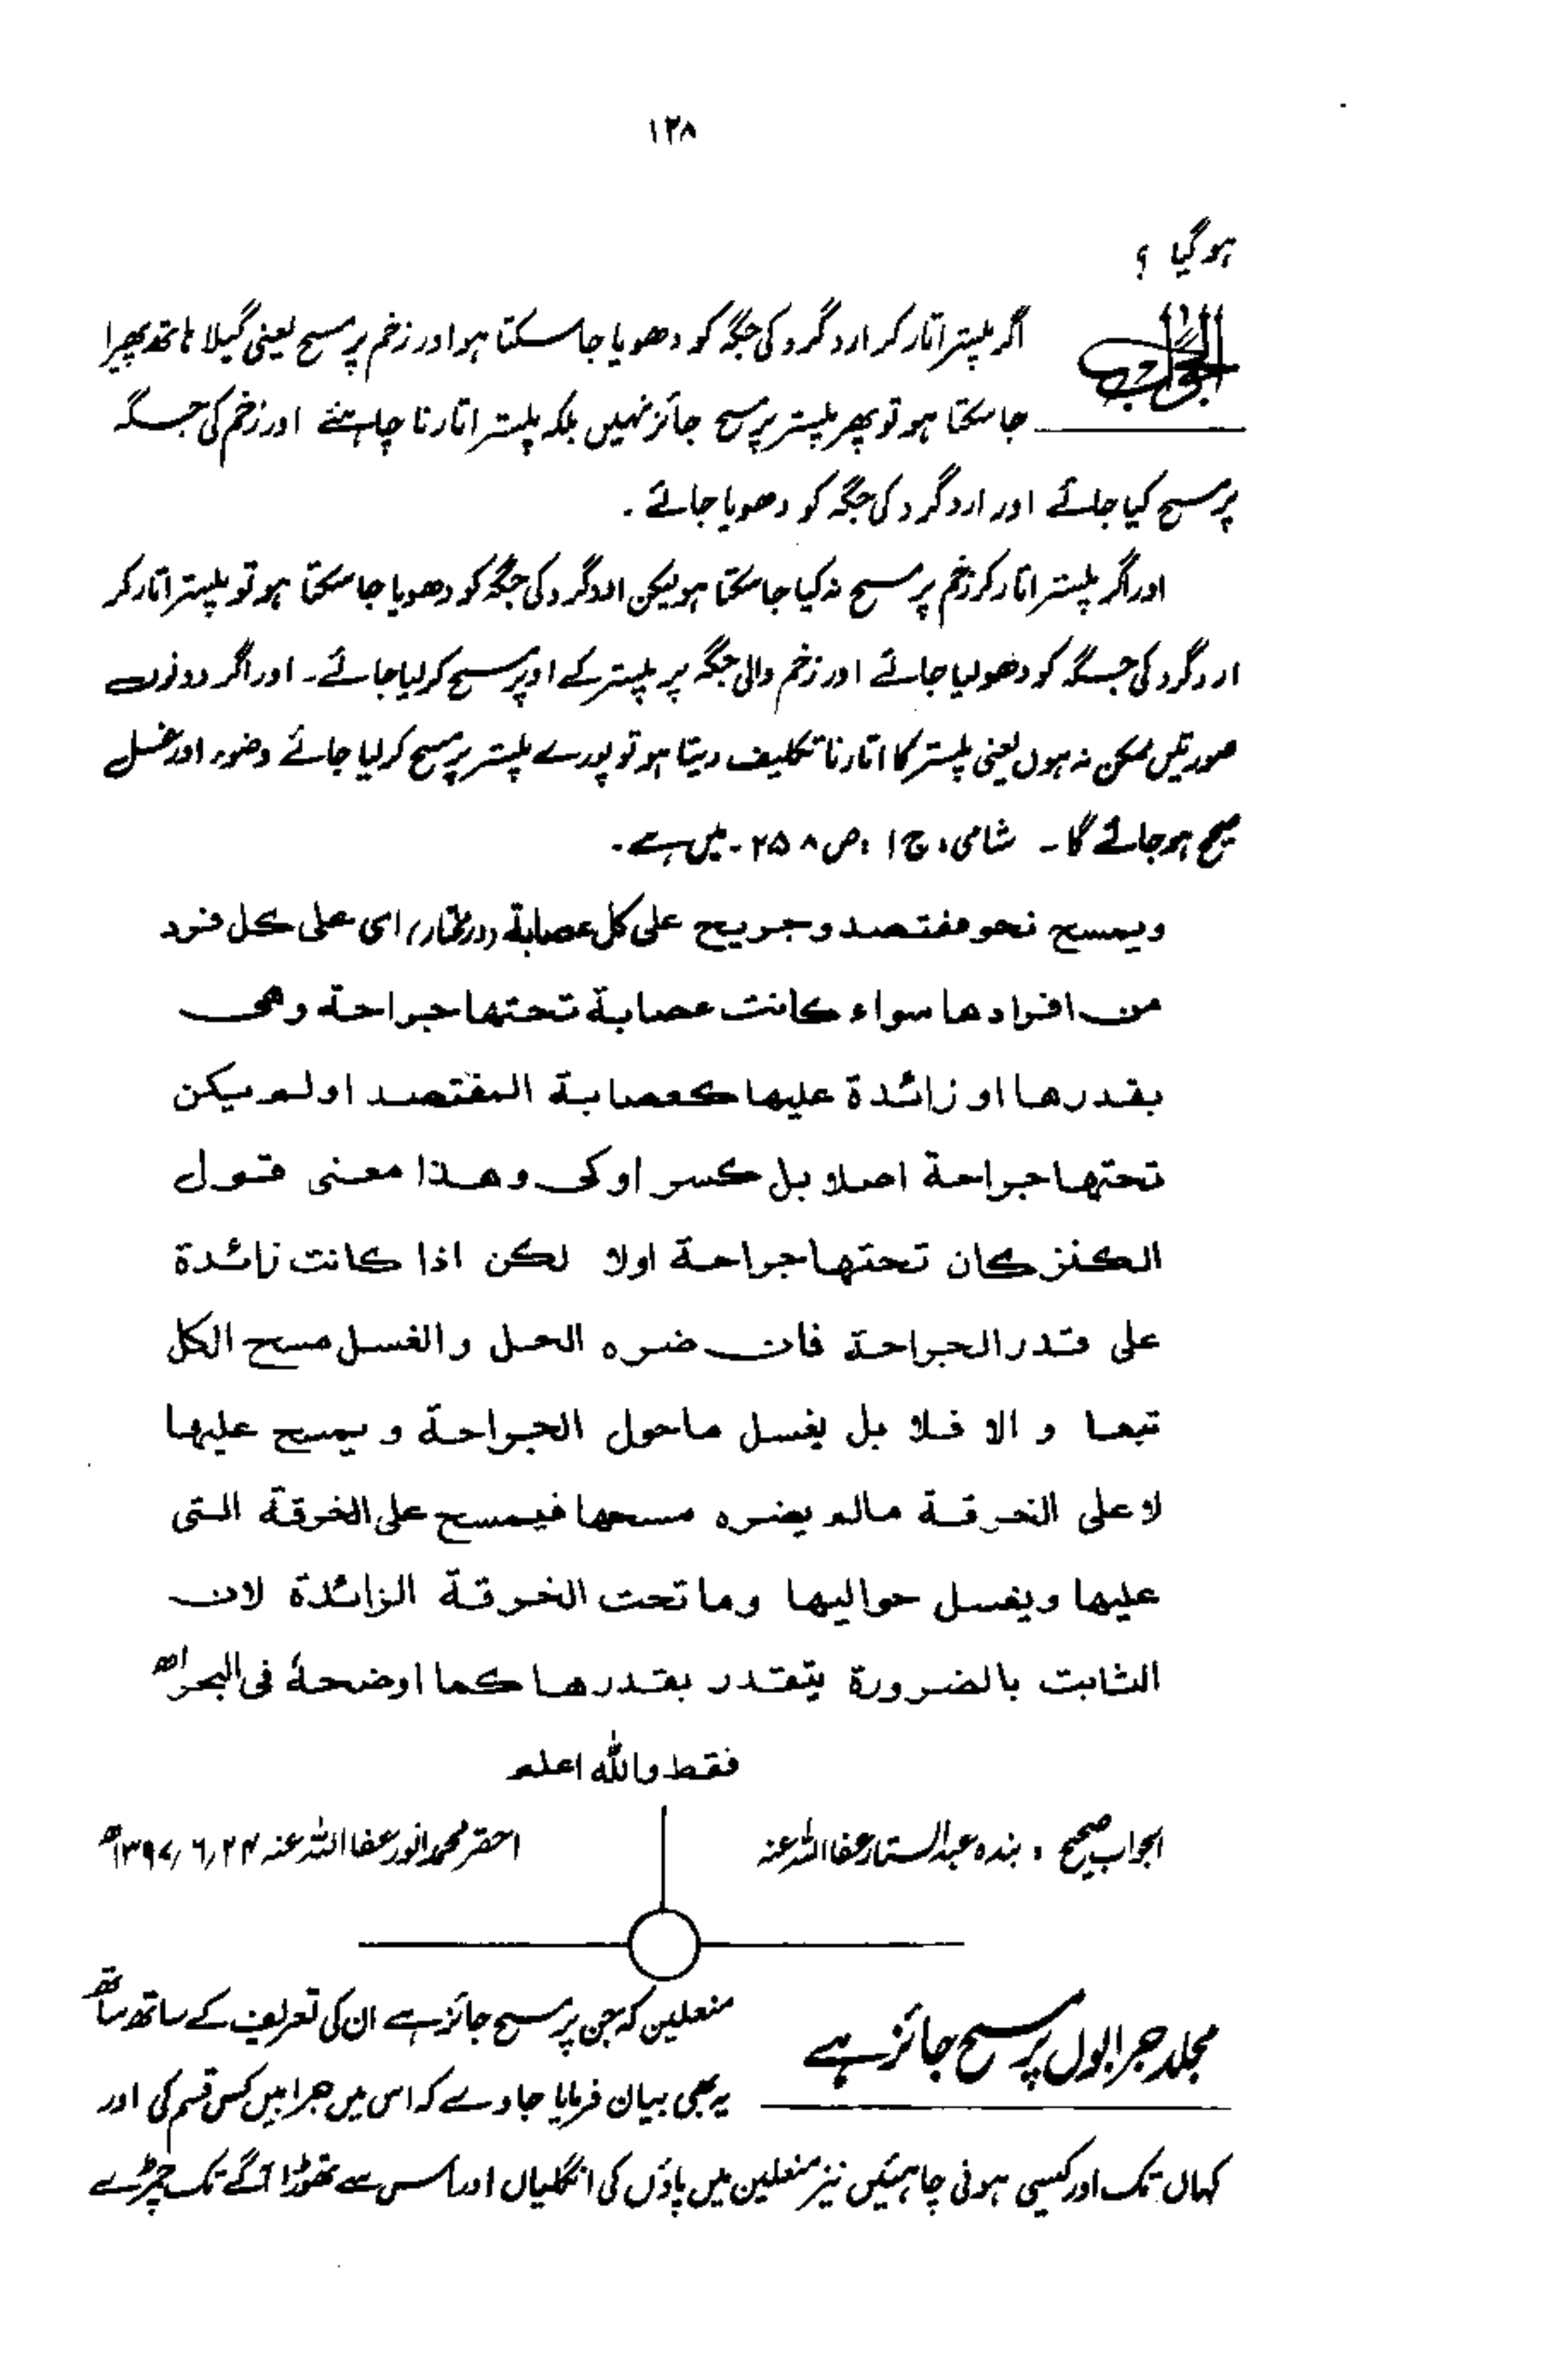 ۱۲۸
ہوگیا ؟
الجواب
اگر پلستر اتار کر ارد گرد کی جگہ کو دھویا جا سکتا ہو اور زخم پر مسح یعنی گیلا ہاتھ پھیرا
جا سکتا ہو تو پھر پلستر پر مسح جائز نہیں بلکہ پلستر اتارنا چاہئے اور زخم کی جگہ
پر مسح کیا جائے اور ارد گرد کی جگہ کو دھویا جائے ۔
اور اگر پلستر اتار کر زخم پر مسح نہ کیا جا سکتا ہو لیکن ارد گرد کی جگہ کو دھویا جا سکتا ہو تو پلستر اتار کر
ارد گرد کی جگہ کو دھو لیا جائے اور زخم والی جگہ پر پلستر کے اوپر مسح کر لیا جائے ۔ اور اگر دونوں
صورتیں ممکن نہ ہوں یعنی پلستر کا اتارنا تکلیف دیتا ہو تو پورے پلستر پر مسح کر لیا جائے وضوء اور غسل
صحیح ہو جائے گا ۔ شامی، ج ۱ ، ص ۲۵۸ ۔ میں ہے ۔
ویمسح نحو مفتصد وجریح علی کل عصابة (درمختار) ای علی کل فرد
من افرادها سواء کانت عصابة تحتها جراحة وهی
بقدرها او زائدة علیها کعصابة المفتصد او لم یکن
تحتها جراحة اصلا بل کسر او کی وهذا معنی قول
الکنز کان تحتها جراحة اولا لکن اذا کانت زائدة
علی قدر الجراحة فان ضره الحل والغسل مسح الکل
تبعا و الا فلا بل یغسل ماحول الجراحة و یمسح علیها
لا علی الخرقة مالم یضره مسحها فیمسح علی الخرقة التی
علیها ویغسل حوالیها وما تحت الخرقة الزائدة لان
الثابت بالضرورة یتقدر بقدرها کما اوضحهٗ فی البحر اھ
فقط واللہ اعلم
الجواب صحیح ، بندہ عبدالستار عفا اللہ عنہ
احقر محمد انور عفا اللہ عنہ ۲۴ر۶ر۱۳۹۷ھ
مجلد جرابوں پر مسح جائز ہے
منعلین کہ جن پر مسح جائز ہے ان کی تعریف کے ساتھ ساتھ
یہ بھی بیان فرمایا جاوے کہ اس میں جرابیں کس قسم کی اور
کہاں تک اور کیسی ہونی چاہئیں نیز منعلین میں پاؤں کی انگلیاں اور اس سے تھوڑا آگے تک چمڑے